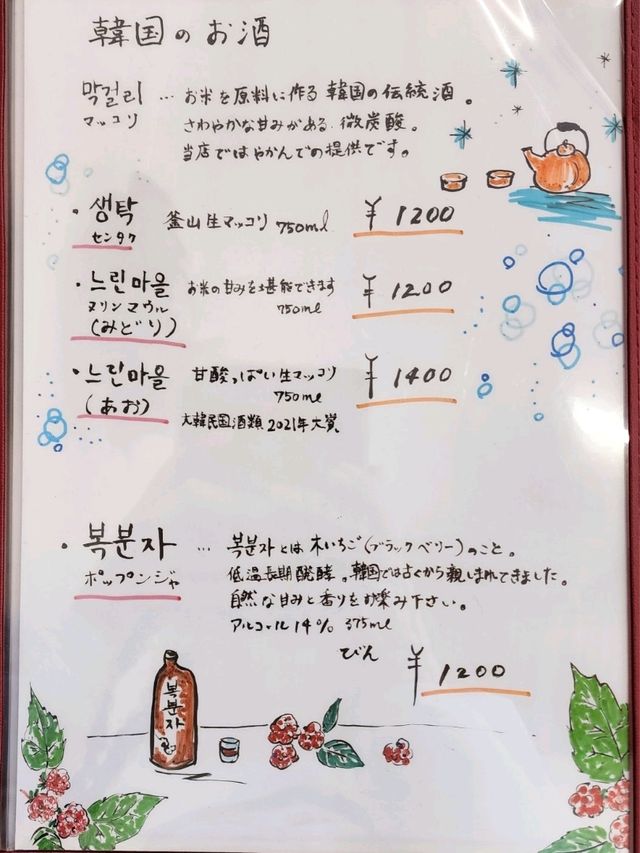 韓国のお酒
막걸리 … お米を原料に作る韓国の伝統酒。
マッコリ さわやかな甘みがある微炭酸。
当店ではやかんでの提供です。
・생탁 釜山生マッコリ 750ml ¥1200
センタク
・느린마을 お米の甘みを堪能できます ¥1200
ヌリンマウル 750ml
(みどり)
・느린마을 甘酸っぱい生マッコリ ¥1400
(あお) 750ml
大韓民国酒類2021年大賞
・복분자 … 복분자とは木いちご(ブラックベリー)のこと。
ポップンジャ 低温長期醗酵。韓国では古くから親しまれてきました。
自然な甘みと香りをお楽み下さい。
アルコール14% 375ml
びん ¥1200
복분자